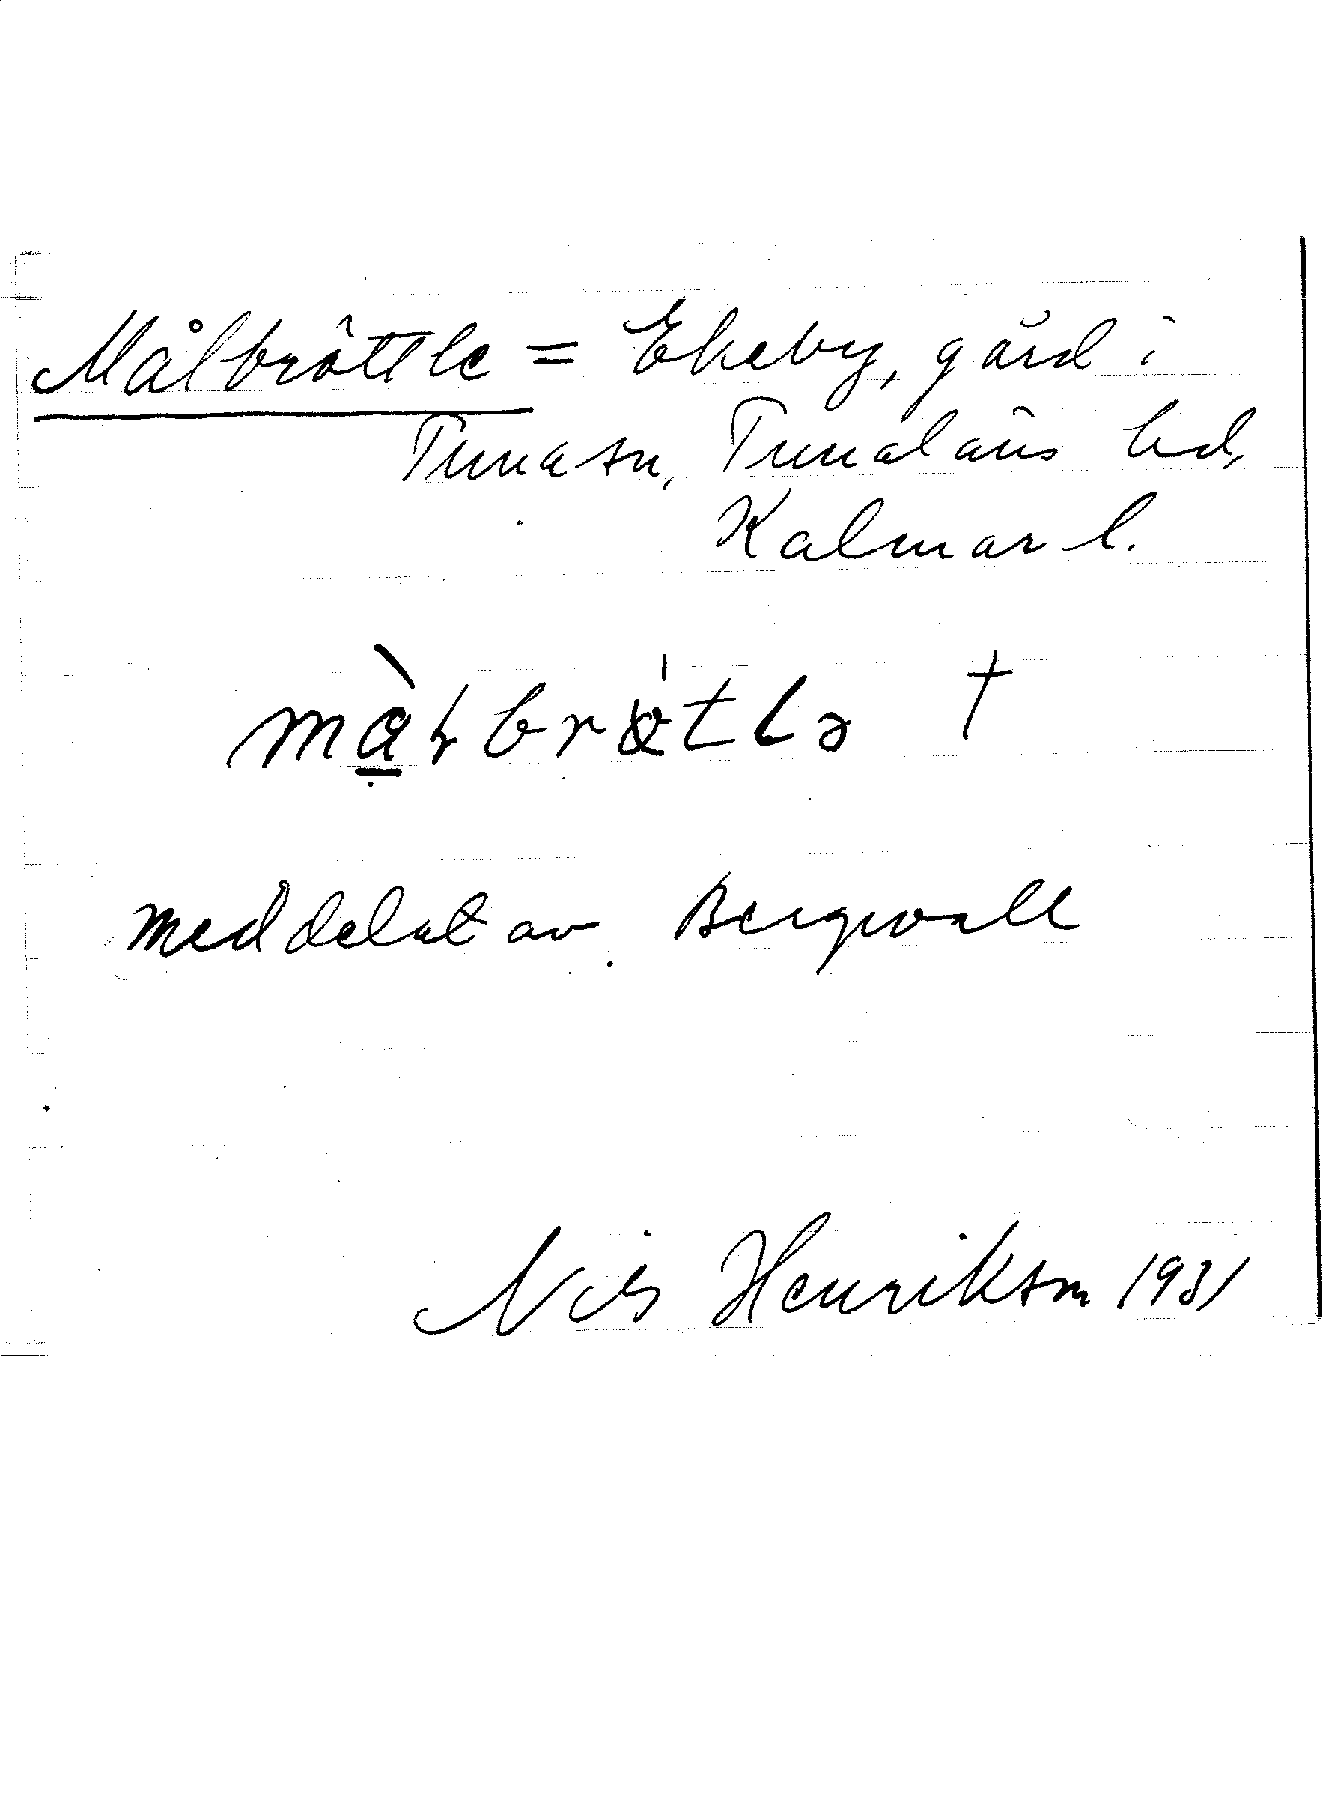 Målbråttle = Ekeby, gård i
Tuna sn, Tunaläns hd,
Kalmar l.
†
meddelat av Bergwall
Nils Henrikson 1931